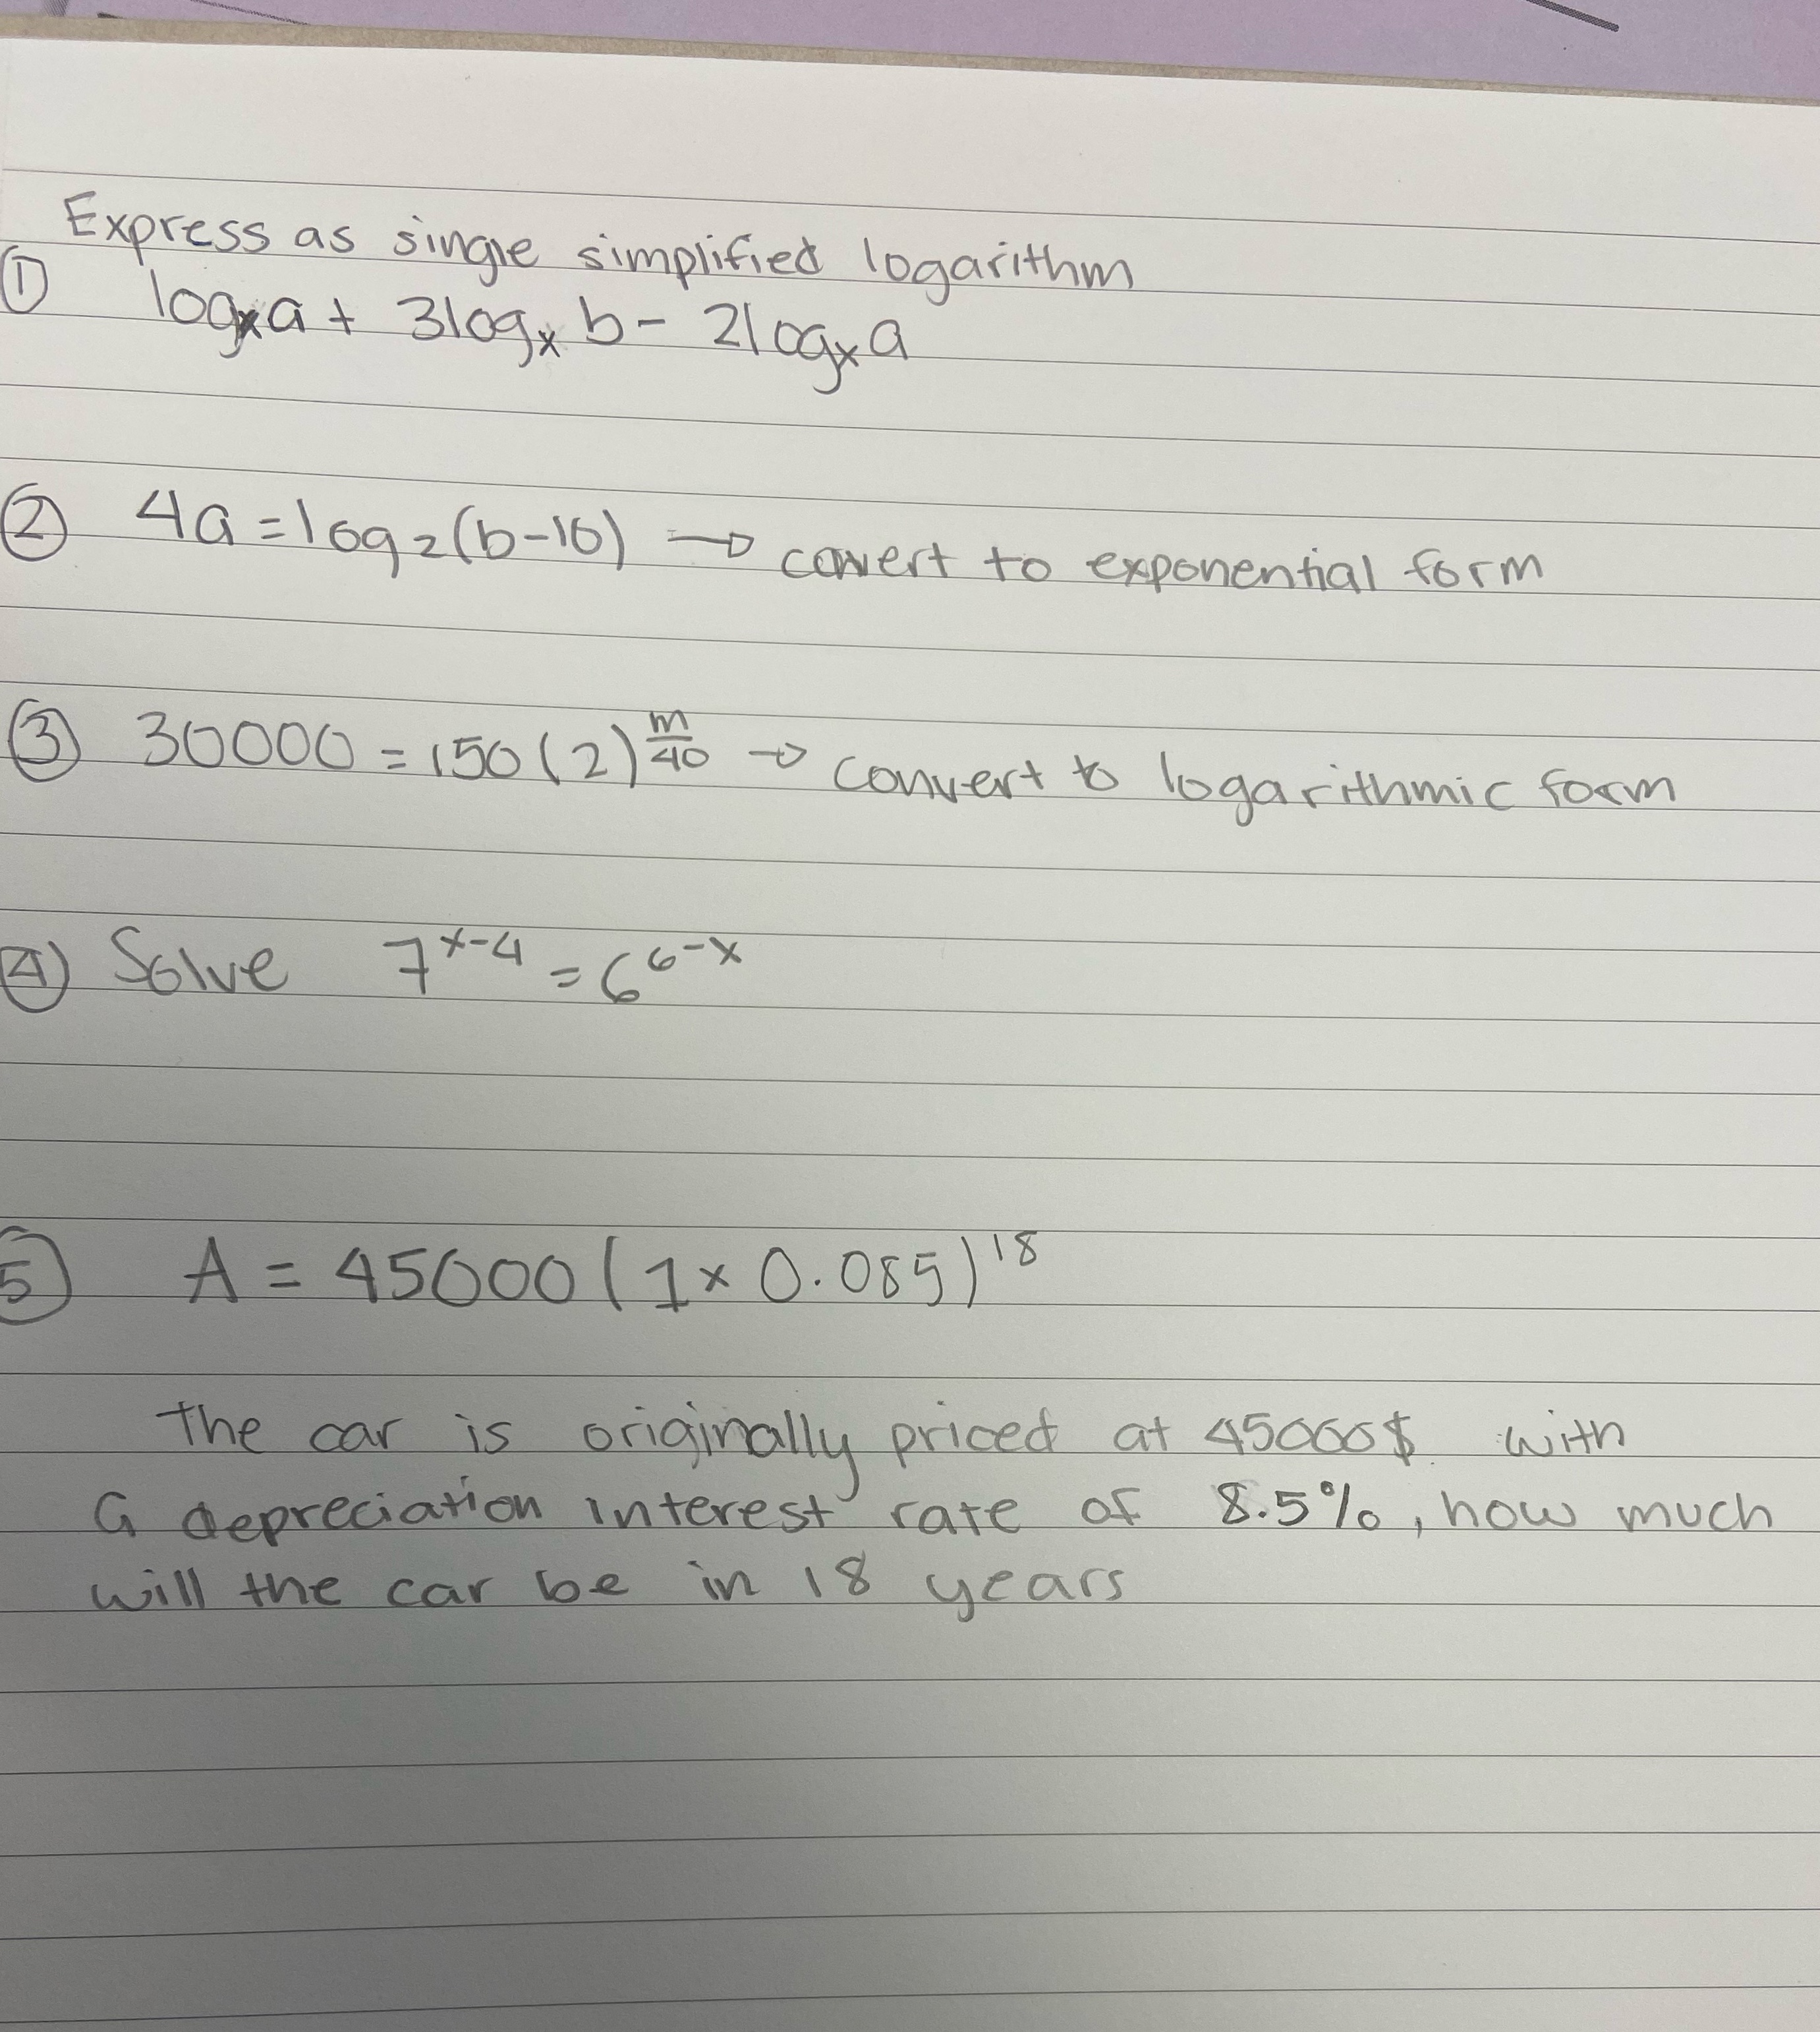 Express as single simplified logarithm
① logₓa + 3logₓ b - 2logₓ a
② 4a = log₂(b-16) → convert to exponential form
③ 30000 = 150(2)^(m/40) → convert to logarithmic form
④ Solve 7^(x-4) = 6^(6-x)
⑤ A = 45000(1 × 0.085)^18
The car is originally priced at 45000$ with
a depreciation interest rate of 8.5%, how much
will the car be in 18 years